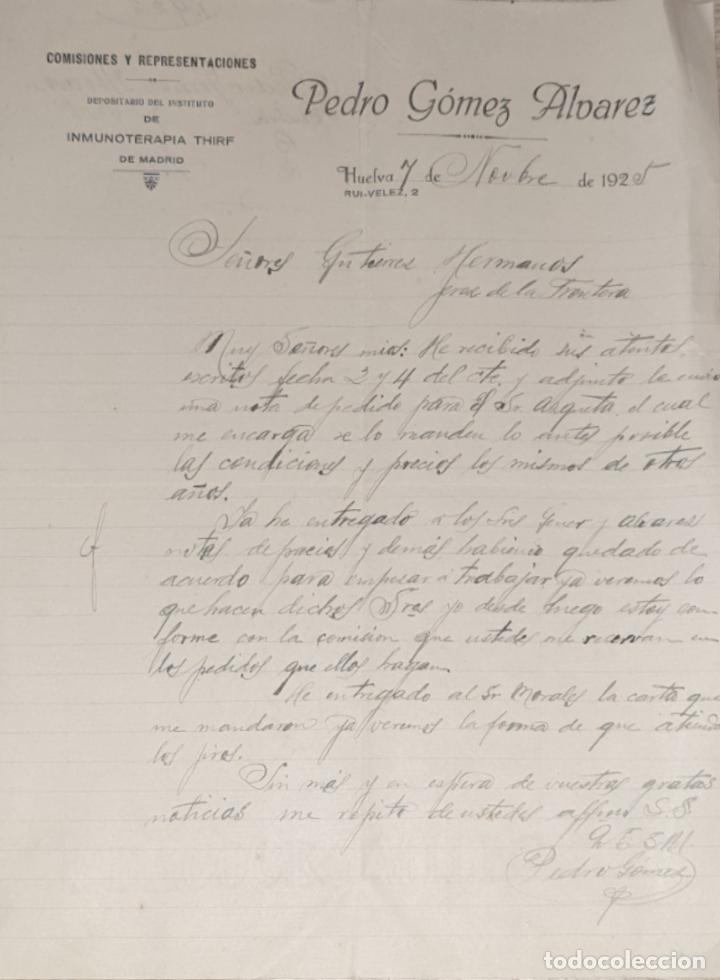 COMISIONES Y REPRESENTACIONES
DEPOSITARIO DEL INSTITUTO
DE
INMUNOTERAPIA THIRF
DE MADRID
Pedro Gómez Alvarez
Huelva 7 de Novbre de 1925
RUI-VELEZ, 2
Señores Gutierrez Hermanos
Jerez de la Frontera
Muy Señores mios: He recibido sus atentos
escritos fecha 2 y 4 del cte. y adjunto le
una nota de pedido para el Sr. Argueta, el cual
me encarga se lo manden lo antes posible
las condiciones y precios los mismos de otros
años.
Ya he entregado a los Sres y Alvarez
notas de precios y demás habiendo quedado de
acuerdo para empesar a trabajar, ya veremos lo
que hacen dichos Sres yo desde luego estoy con
forme con la comision que ustedes me reservan en
los pedidos que ellos hagan.
He entregado al Sr Morales la carta que
me mandaron ya veremos la forma de que atienda
los giros.
Sin más y en espera de vuestras gratas
noticias me repito de ustedes affmo S.S.
Q E S M.
Pedro Gómez
todocoleccion